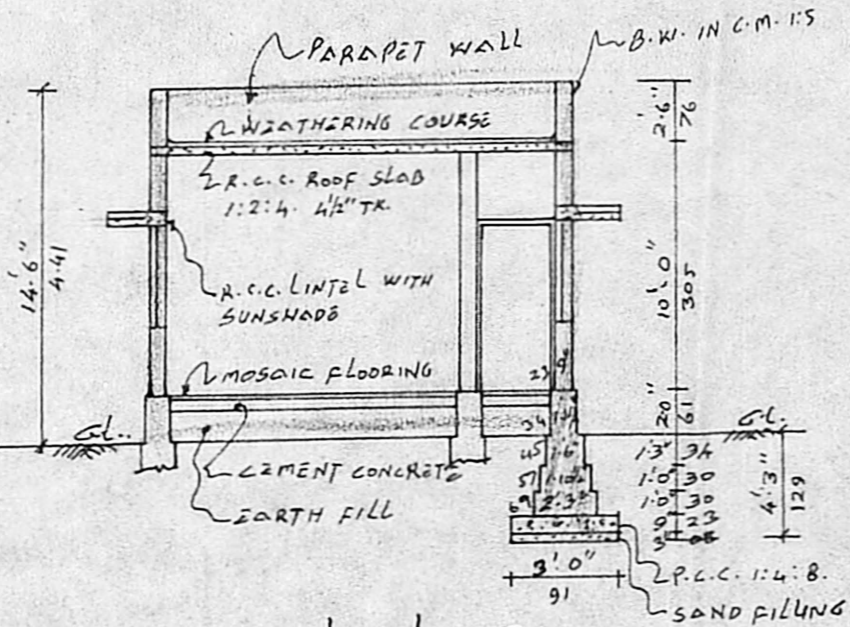 PARAPET WALL
B.W. IN C.M. 1:5
WEATHERING COURSE
R.C.C. ROOF SLAB
1:2:4. 4½" TK.
R.C.C. LINTEL WITH
SUNSHADE
MOSAIC FLOORING
G.L.
CEMENT CONCRETE
EARTH FILL
14'.6"
4.41
2'.6"
76
10'.0"
305
2'0"
61
G.L.
23 9"
34
45 1'.6"
57 1'.10½"
69 2'.3"
1'.3" 34
1'.0" 30
1'.0" 30
9 23
3"
4'.3"
129
3'.0"
91
P.C.C. 1:4:8.
SAND FILLING